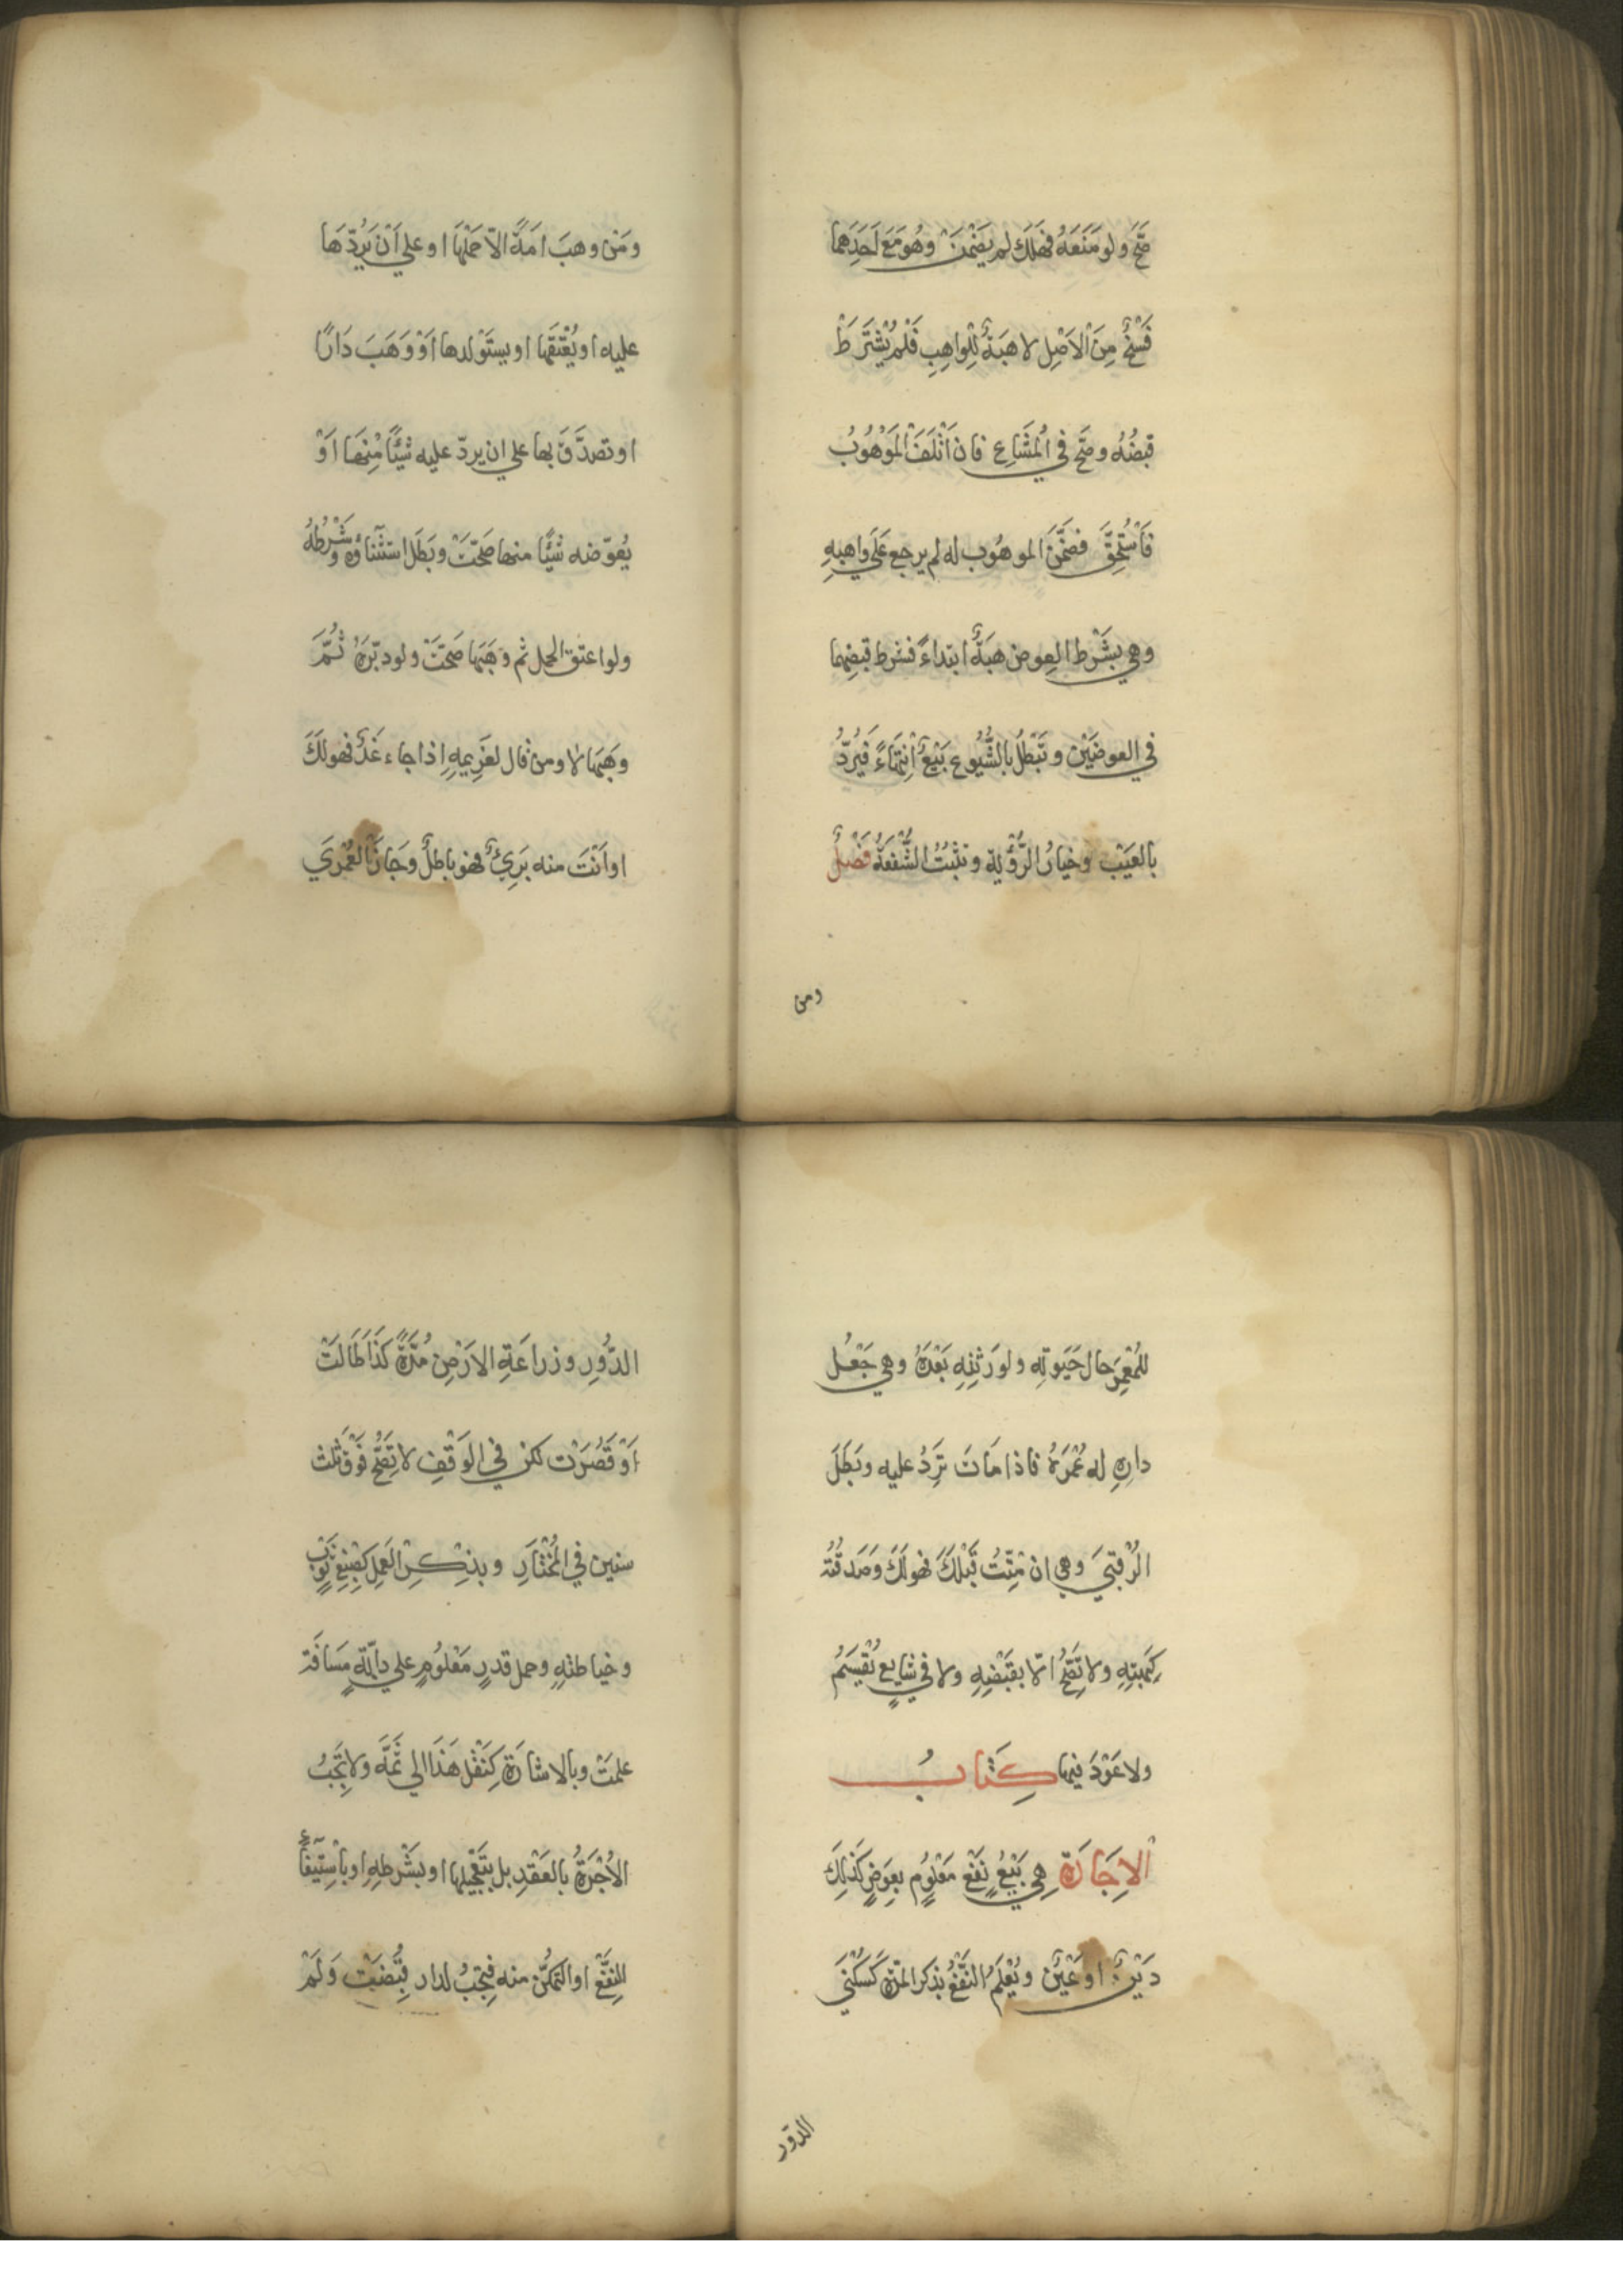 صَحَّ ولو مَنَعَهُ فهَلَكَ لم يَضْمَنْ وهُوَ مَعَ اَحَدِهما
فَسْخٌ مِنَ الْاَصْلِ لا هبَةٌ لِلْواهِبِ فَلَمْ يُشْتَرَطْ
قبضُهُ وصَحَّ في اْلمُشَاعِ فان اَتْلَفَ الْمَوْهُوبُ
فَاسْتُحِقَّ فضَمَّنَ الموهُوب له لم يرجع عَلَى واهبهِ
وهي بشَرْط العِوض هبَةٌ ابتداءً فشرط قبضهما
في العوضَيْن وتَبْطُلُ بالشُّيُوع بَيْعٌ اْنِتهَاءً فَيُرَدُّ
بالعَيْب وخيارُ الرُّؤْية وتثبُتُ الشُّفعَةُ فَصْلٌ
ومن
ومَنْ وهبَ امَةً الاّ حَمْلَهَا او علي اَنْ يَرُدَّهَا
عليه او يُعْتقَها او يستَوْلدها اَوْ وَهَبَ دَارًا
او تصدَّقَ بها علي ان يردّ عليه شيْئًا مِنْهَا اَوْ
يُعوّضه شيْئًا منها صَحّتْ وبَطَل استثناؤه وشَرْطُهُ
ولو اعتق الحمل ثم وَهَبَها صَحّتْ ولو دبّرَهُ ثُمَّ
وهَبَها لا ومن قال لغَرِيمِهِ اِذا جاء غَدٌ فهو لَكَ
او اَنْتَ منه بَرِيٌ فهو باطلٌ وجَازَ الْعُمْرَي
للمُعْمَرِ حال حَيَوتِهِ ولوَرَثتِهِ بَعْدَهُ وهي جَعْلُ
دارِهِ له عُمْرَهُ فاذا مَاتَ تُرَدُّ عليه وبَطَلَ
الرُّقْبَي وهي ان مُتُّ قَبْلَكَ فهو لَكَ وصَدقتُهُ
كَهِبتِهِ ولا تَصِحُّ الّا بقَبْضِهِ ولا في شايعٍ يُقْسَمُ
ولا عَوْدَ فيها كِتَابُ
الاِجَارَةِ هِي بَيْعُ نَفْعٍ مَعْلُومٍ بعِوَضٍ كَذلِكَ
دَيْنٌ اوعَيْنٌ ويُعْلَمُ النَّفْعُ بذكر المدّة كَسُكْنَي
الدوّر
الدُّوِرِ وزراعَةِ الارَضِ مُدّةً كَذَا طَالتْ
اَوْ قَصُرَتْ لكن في الوَقْفِ لا تَصِحُّ فَوْقَ ثَلث
سنين في الْمُخْتَارِ وبذِكْرِ العَمِل كَصِبْغِ ثَوْبٍ
وخياطتِهِ وحمل قدرٍ مَعْلُومٍ علي دابّةٍ مَسَافَة
علمَتْ وبالاشارَةِ كَنَقْل هَذَا الي ثَمَّهَ ولا تَجِبُ
الاُجْرَةُ بالعَقْدِ بل بتَعْجِيلها او بشَرْطِهِ او باْسِتيفَاءِ
النفْعِ او التمكُّن منه فتجِبُ لدار قُبِضَتْ وَلَمْ